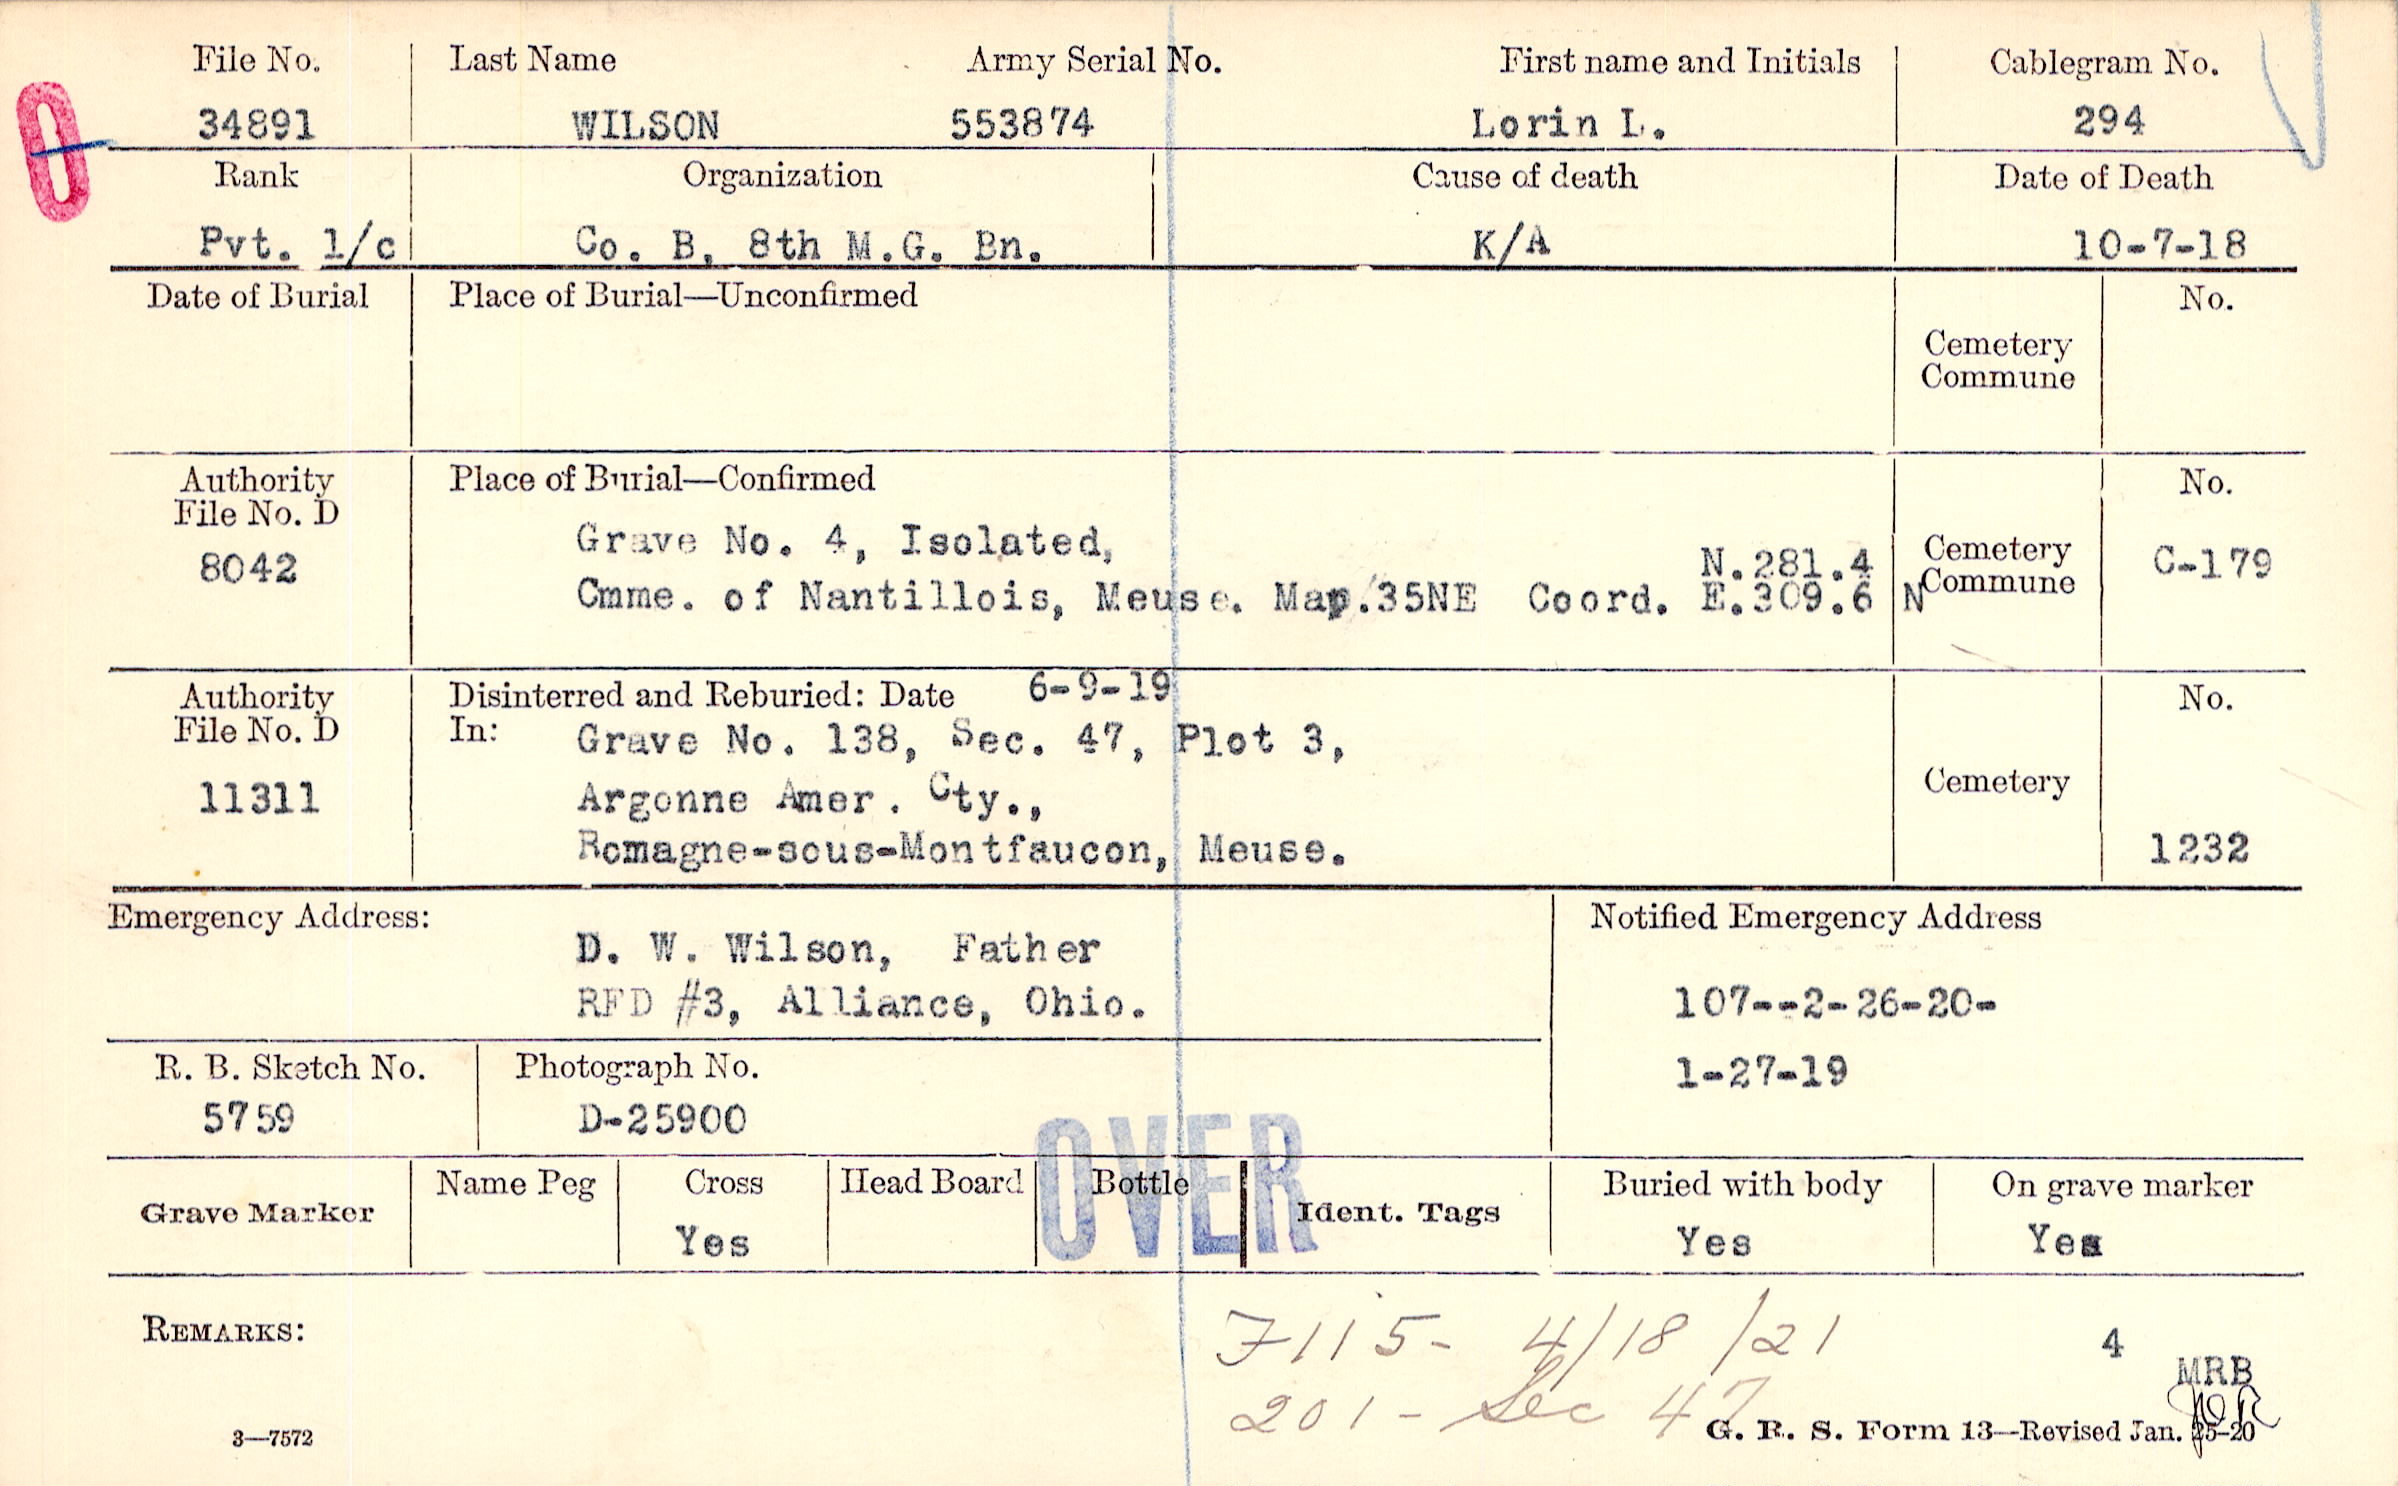 File No. Last Name Army Serial No. First name and Initials Cablegram No.
34891 WILSON 553874 Lorin L. 294
Rank Organization Cause of death Date of Death
Pvt. 1/c Co. B, 8th M.G. Bn. K/A 10-7-18
Date of Burial Place of Burial—Unconfirmed No.
Cemetery
Commune
Authority Place of Burial—Confirmed No.
File No. D
8042
Grave No. 4, Isolated,
N.281.4 Cemetery C-179
Cmme. of Nantillois, Meuse. Map.35NE Coord. E.309.6 N Commune
Authority Disinterred and Reburied: Date 6-9-19 No.
File No. D In: Grave No. 138, Sec. 47, Plot 3,
11311 Argonne Amer. Cty., Cemetery
Romagne-sous-Montfaucon, Meuse. 1232
Emergency Address: Notified Emergency Address
D. W. Wilson, Father
RFD #3, Alliance, Ohio. 107--2-26-20-
R. B. Sketch No. Photograph No. 1-27-19
5759 D-25900
OVER
Grave Marker Name Peg Cross Head Board Bottle Ident. Tags Buried with body On grave marker
Yes Yes Yes
REMARKS: 7115- 4/18/21 4
MRB
201- Sec 47
3—7572 G. R. S. Form 13—Revised Jan. 25-20